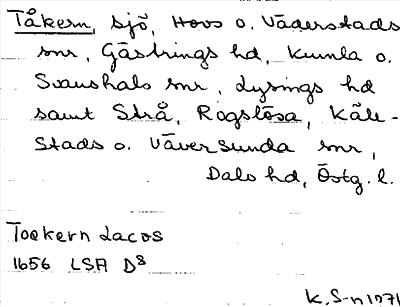 Tåkern, sjö, Hovs o. Väderstads
snr, Göstrings hd, Kumla o.
Svanshals snr, Lysings hd
samt Strå, Rogslösa, Käll-
stads o. Väversunda snr,
Dals hd, Östg. l.
Toekern Lacos
1656 LSA D8
K. S-n 1971